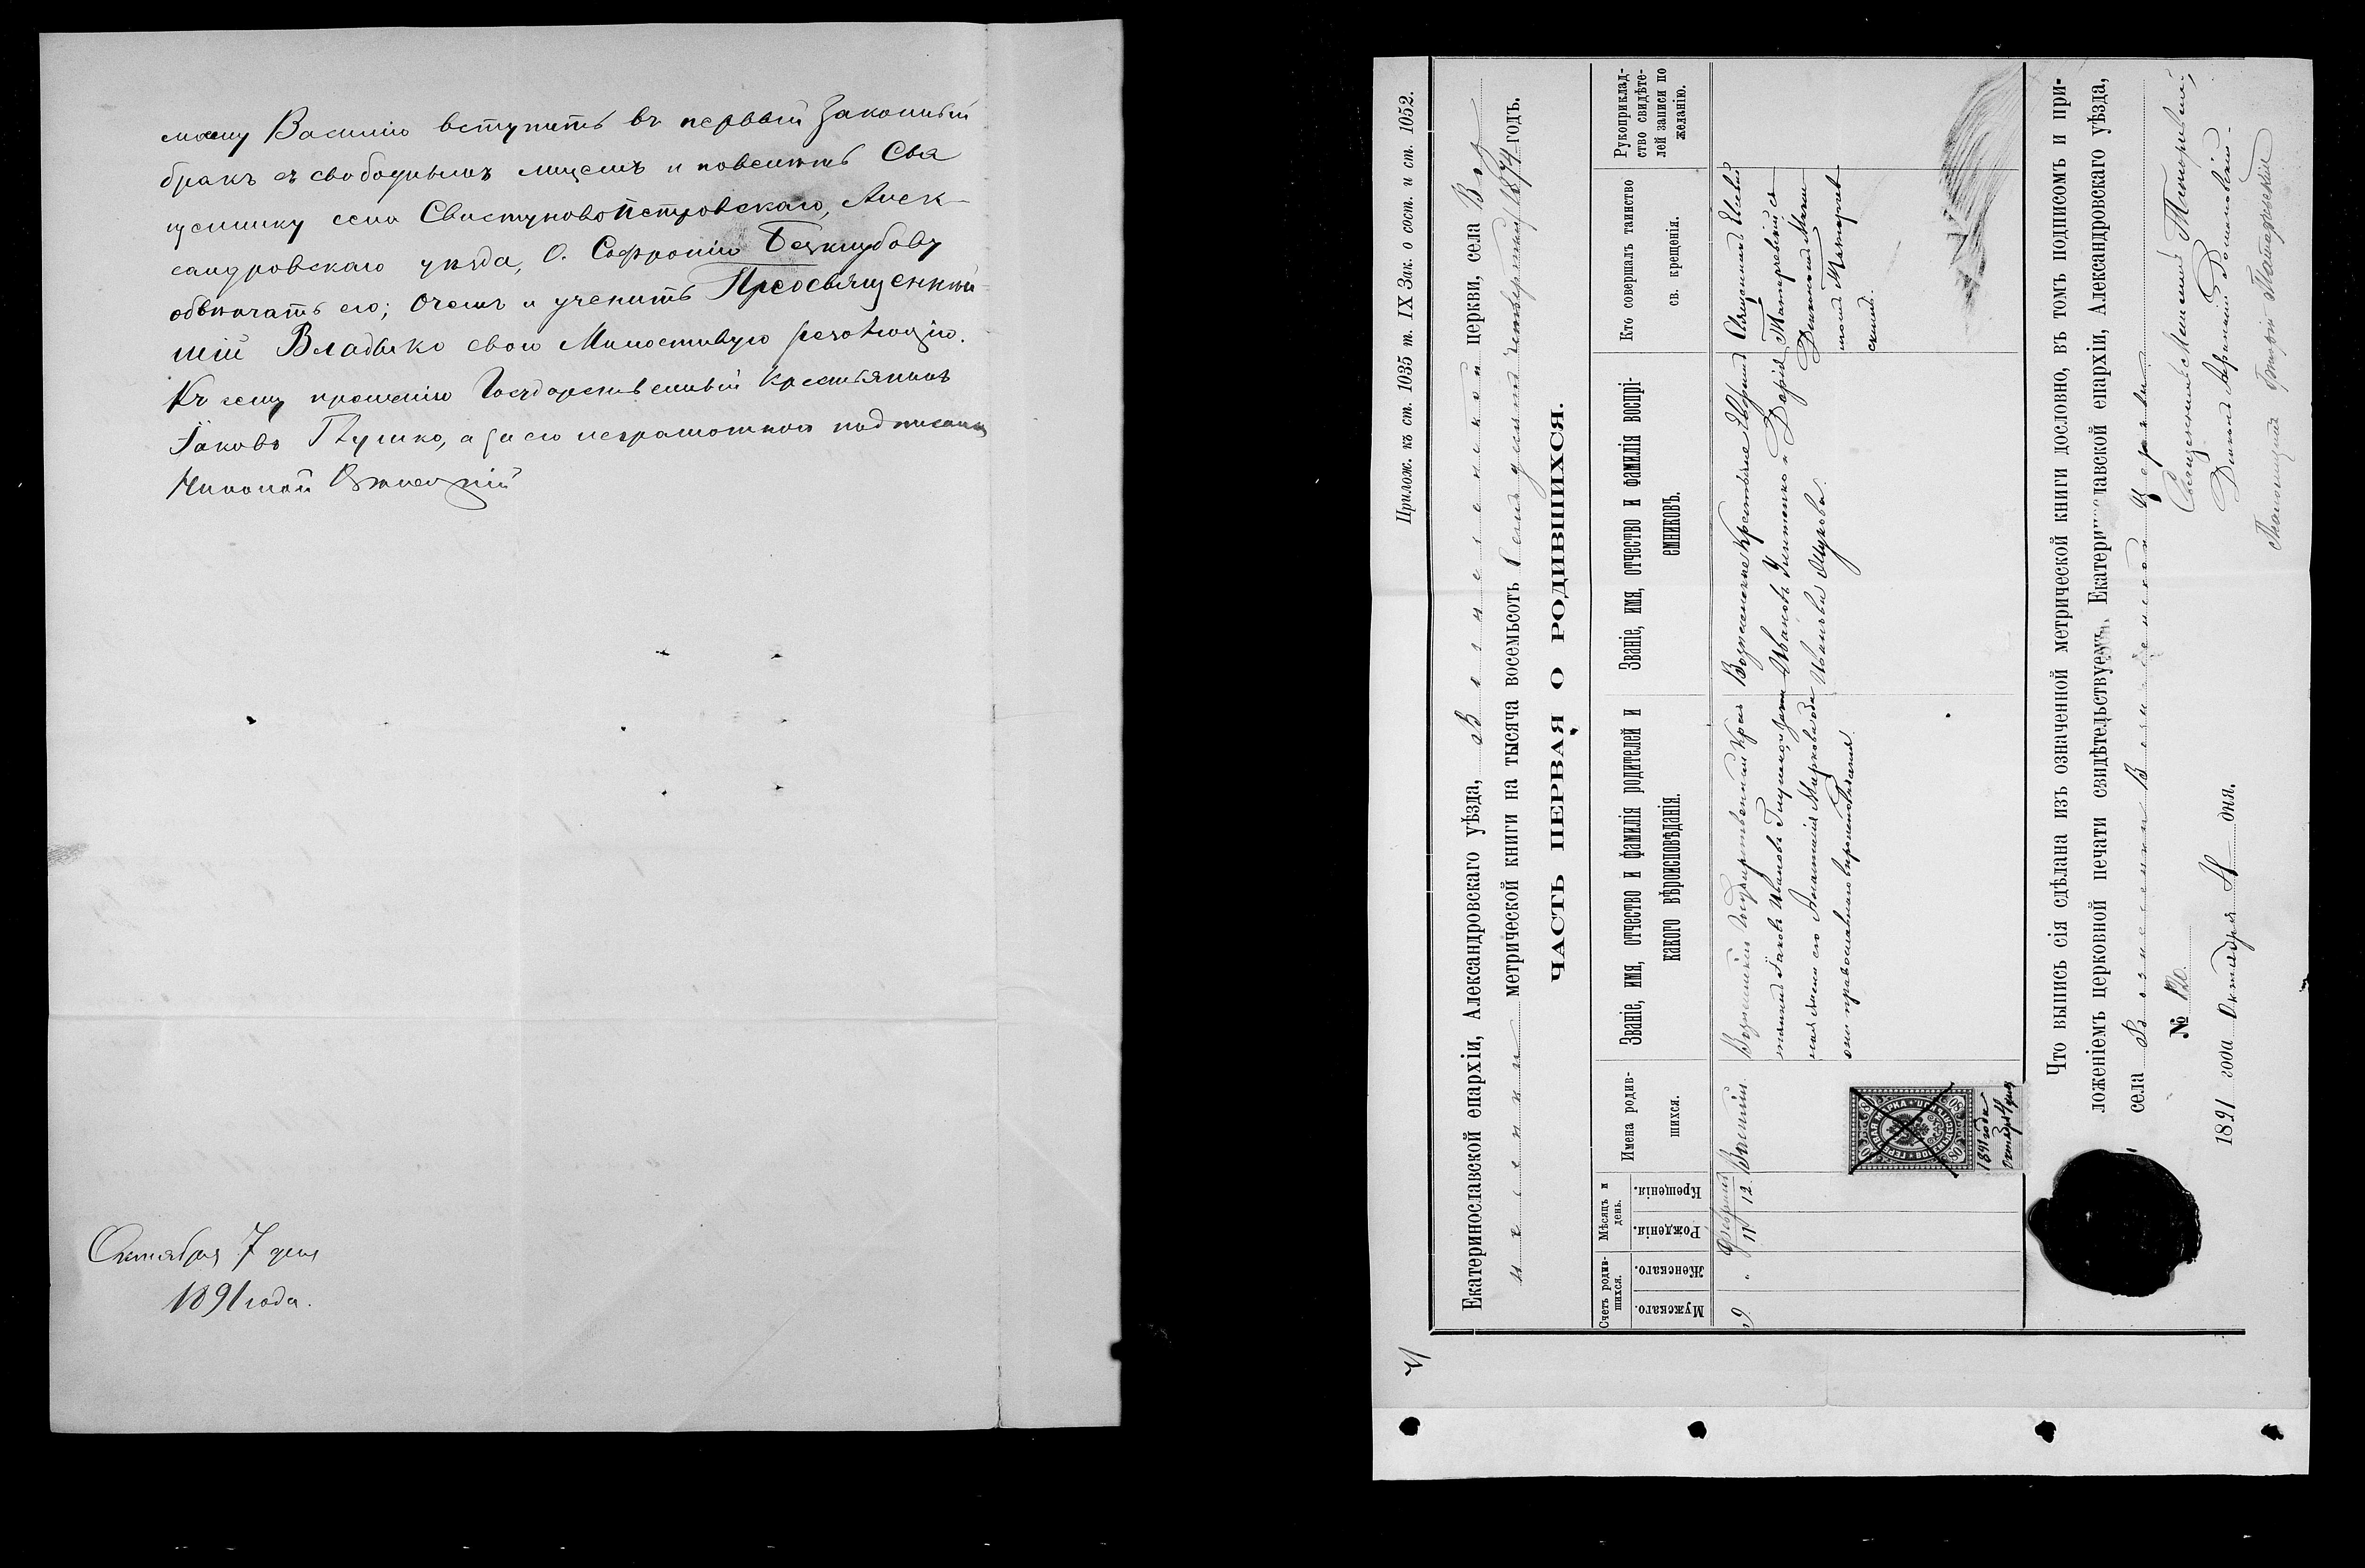 моему Василію вступить въ первый законный
бракъ съ свободнымъ лицемъ и повелить Свя
щеннику села Свистуновопетровскаго, Алек-
сандровскаго уѣзда, О. Софронію Безклубову
обвѣнчать его; О чемъ и учинить Преосвященнѣй-
шій Владыко свою Милостивую резолюцію.
Къ сему прошенію Государственный крестьянинъ
Іаковъ Глушко, а за его неграмотного подписался
Николай
Октября 7 дня
1891 года.
Прилож. къ ст. 1035 т. IX Зак. о сост. и ст. 1052.
Екатеринославской епархіи, Александровскаго уѣзда, Вознесенской церкви, села Воз
несенки метрической книги на тысяча восемьсотъ семьдесятъ четвертый/1874 годъ.
ЧАСТЬ ПЕРВАЯ О РОДИВШИХСЯ.
Счетъ родив-
шихся.
Мужскаго.
Женскаго.
Мѣсяцъ и
день.
Рожденія.
Крещенія.
Имена родив-
шихся.
Званіе, имя, отчество и фамилія родителей и
какого вѣроисповѣданія.
Званіе, имя, отчество и фамилія воспрі-
емниковъ.
Кто совершалъ таинство
св. крещенія.
Рукоприклад-
ство свидѣте-
лей записи по
желанію.
9
"
Февраля
11
12
Василій.
Вознесенскій Государственный крес
тьянинъ Іаковъ Ивановъ Глушко, и закон
ная жена его Анастасія Маркова оба
они православнаго вѣроисповѣданія.
Вознесенскіе крестьяне
Ивановъ и Дарія
Иванова
Священникъ
съ
1891 года
Октября 4 дня
ГЕРБОВАЯ МАРКА
80
Что выпись сія сдѣлана изъ означенной метрической книги дословно, въ томъ подписомъ и при-
ложеніемъ церковной печати свидѣтельствуемъ, Екатеринославской епархіи, Александровскаго уѣзда,
села Вознесенки Вознесенской Церкви
Священникъ
№ 120.
Діаконъ
1891 года Октября 4 дня.
Псаломщикъ